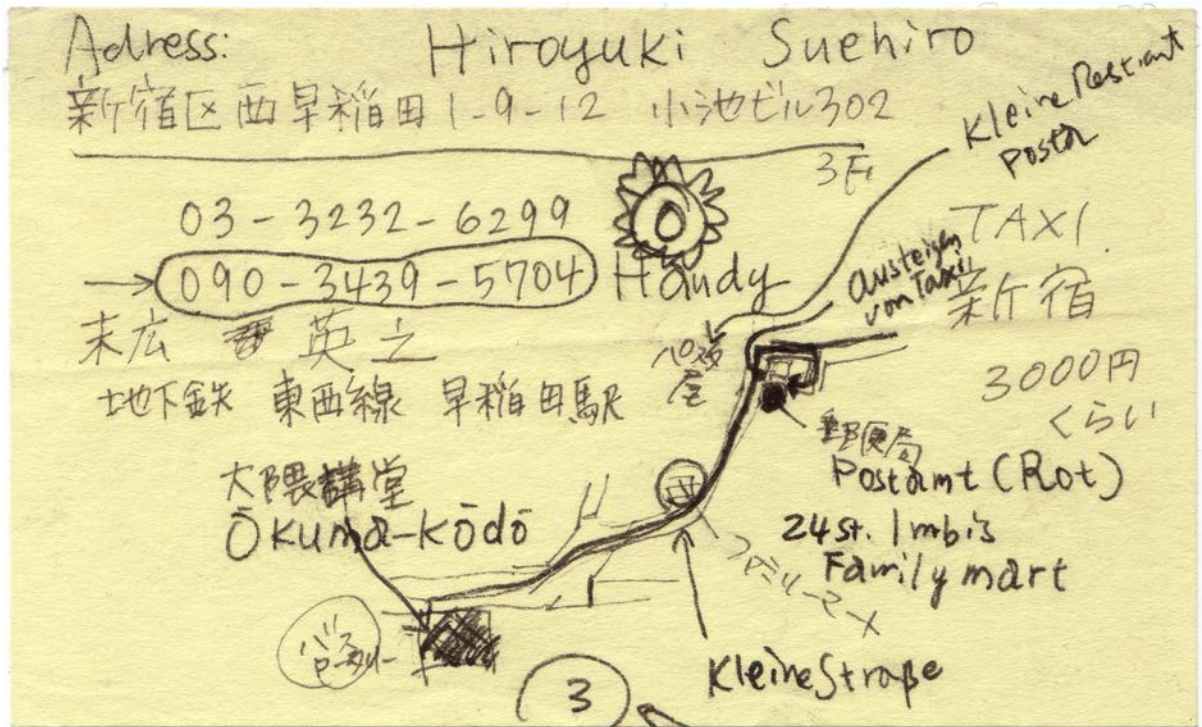 Adress: Hiroyuki Suehiro
新宿区西早稲田1-9-12 小池ビル302
3F
Kleine Restrant
Pasta
03-3232-6299
→ 090-3439-5704 Handy
TAXI
新宿
3000円
くらい
austeigen
von Taxi
末広 英之
地下鉄 東西線 早稲田駅
パスタ
屋
郵便局
Postamt (Rot)
大隈講堂
Ōkuma-kōdō
24st. Imbis
Family mart
ファミリーマート
Kleine Straße
3